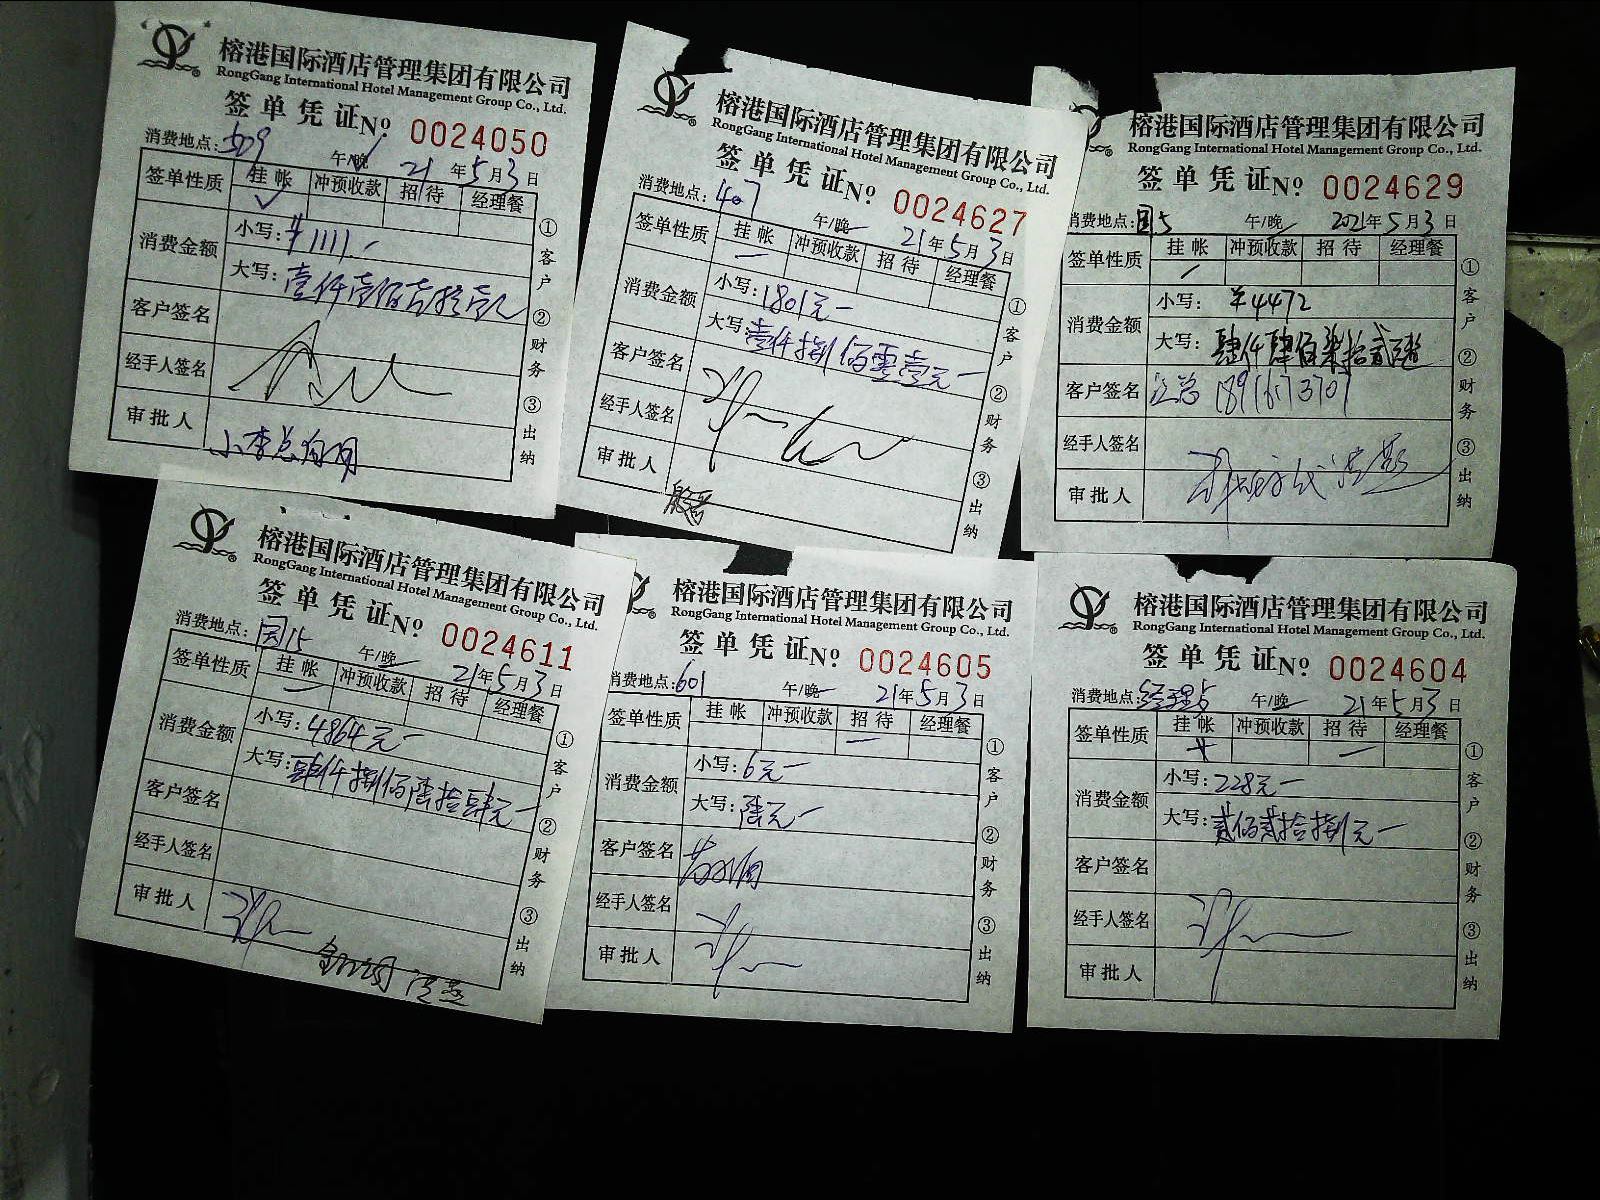 榕港国际酒店管理集团有限公司
RongGang International Hotel Management Group Co., Ltd.
签单凭证 No 0024050
消费地点: 午/晚 21年5月3日
签单性质 挂帐 冲预收款 招待 经理餐
消费金额 小写:¥1111.-
大写:壹仟壹佰壹拾壹元
客户签名
经手人签名
审批人
小李总
①客户 ②财务 ③出纳
榕港国际酒店管理集团有限公司
RongGang International Hotel Management Group Co., Ltd.
签单凭证 No 0024627
消费地点:407 午/晚 21年5月3日
签单性质 挂帐 冲预收款 招待 经理餐
消费金额 小写:1801元-
大写:壹仟捌佰零壹元-
客户签名
经手人签名
审批人
①客户 ②财务 ③出纳
榕港国际酒店管理集团有限公司
RongGang International Hotel Management Group Co., Ltd.
签单凭证 No 0024629
消费地点:园5 午/晚 2021年5月3日
签单性质 挂帐 冲预收款 招待 经理餐
消费金额 小写:¥4472
大写:肆仟肆佰柒拾贰元整
客户签名 汪总
经手人签名
审批人
①客户 ②财务 ③出纳
榕港国际酒店管理集团有限公司
RongGang International Hotel Management Group Co., Ltd.
签单凭证 No 0024611
消费地点:园15 午/晚 21年5月3日
签单性质 挂帐 冲预收款 招待 经理餐
消费金额 小写:4864元-
大写:肆仟捌佰陆拾肆元-
客户签名
经手人签名
审批人
①客户 ②财务 ③出纳
榕港国际酒店管理集团有限公司
RongGang International Hotel Management Group Co., Ltd.
签单凭证 No 0024605
消费地点:601 午/晚 21年5月3日
签单性质 挂帐 冲预收款 招待 经理餐
消费金额 小写:6元-
大写:陆元-
客户签名
经手人签名
审批人
①客户 ②财务 ③出纳
榕港国际酒店管理集团有限公司
RongGang International Hotel Management Group Co., Ltd.
签单凭证 No 0024604
消费地点: 午/晚 21年5月3日
签单性质 挂帐 冲预收款 招待 经理餐
消费金额 小写:228元-
大写:贰佰贰拾捌元-
客户签名
经手人签名
审批人
①客户 ②财务 ③出纳